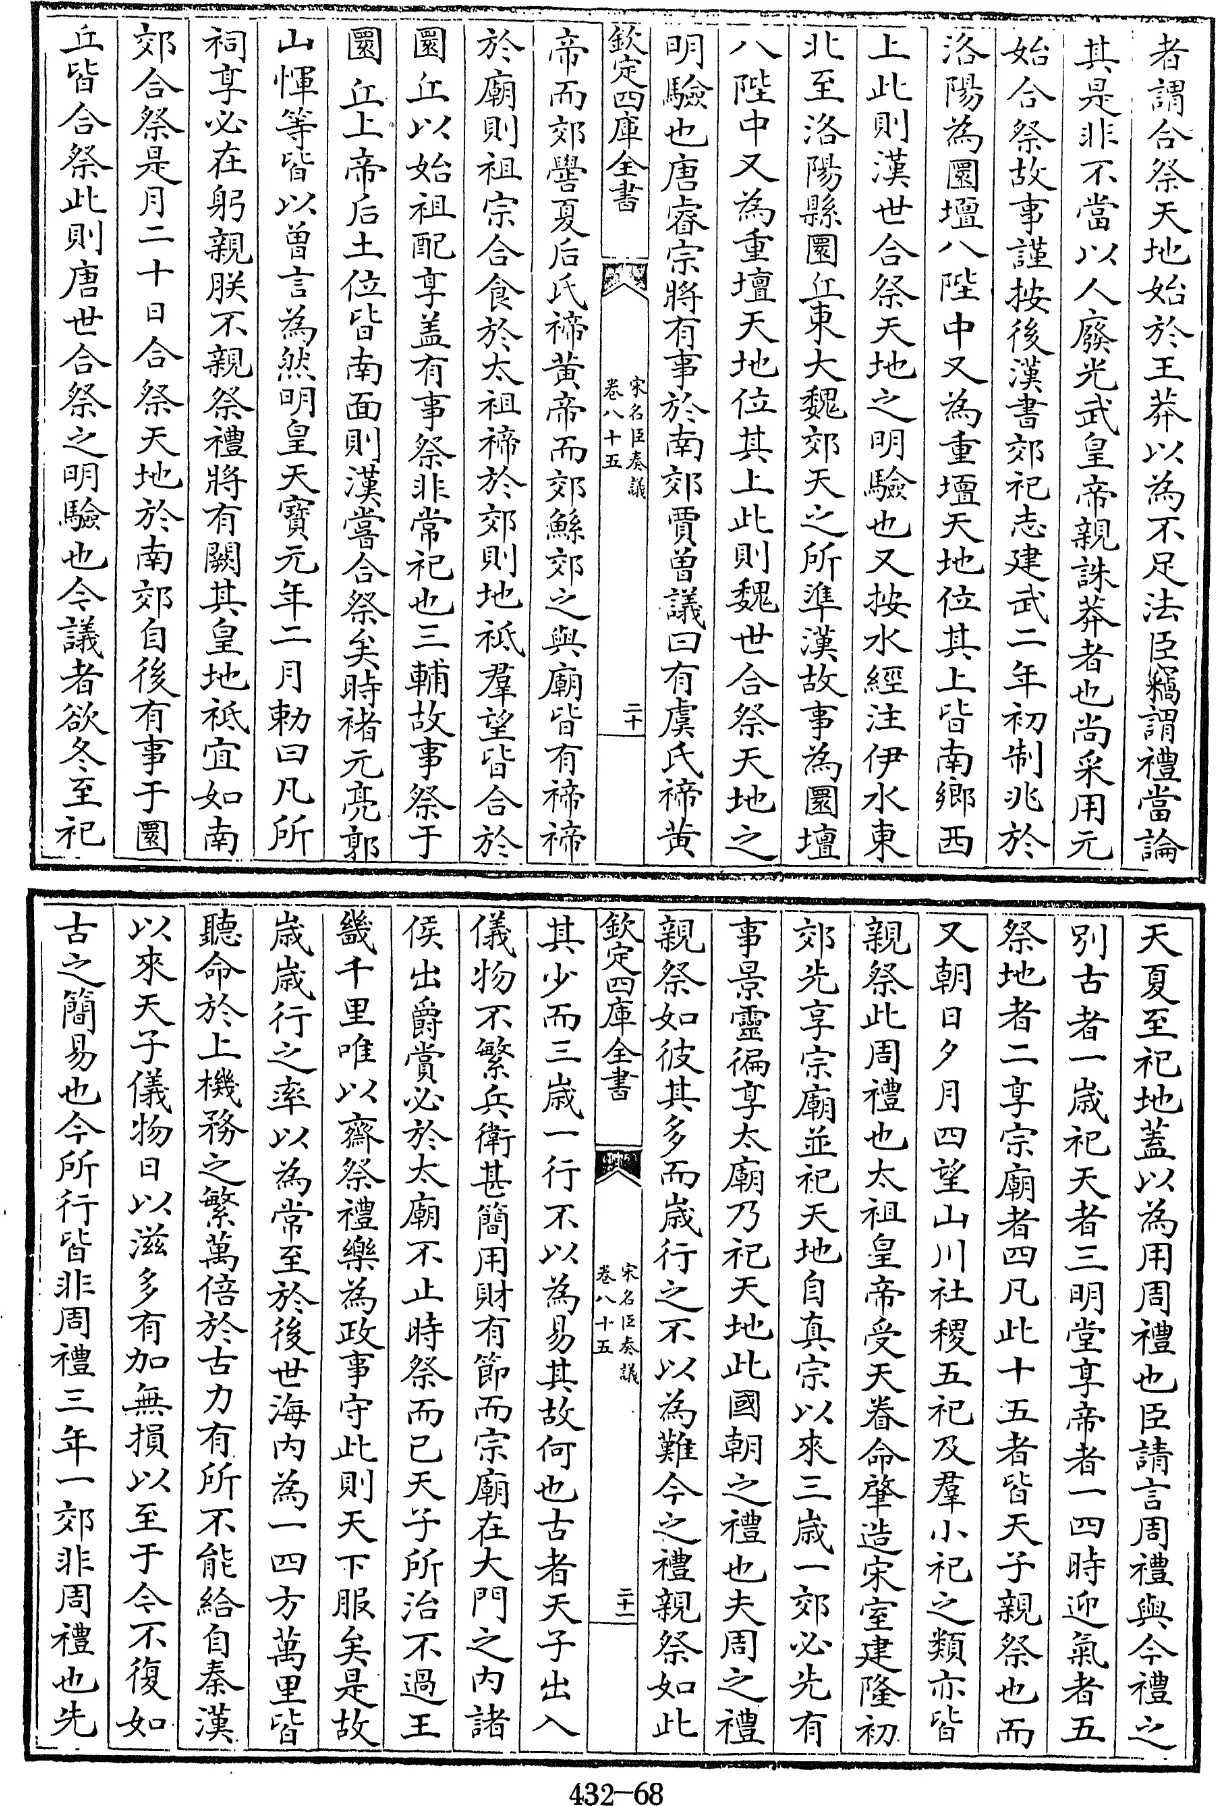 者謂合祭天地始於王莽以為不足法臣竊謂禮當論
其是非不當以人廢光武皇帝親誅莽者也尚采用元
始合祭故事謹按後漢書郊祀志建武二年初制兆於
洛陽為圜壇八陛中又為重壇天地位其上皆南鄉西
上此則漢世合祭天地之明驗也又按水經注伊水東
北至洛陽縣圜丘東大魏郊天之所準漢故事為圜壇
八陛中又為重壇天地位其上此則魏世合祭天地之
明驗也唐睿宗將有事於南郊賈曾議曰有虞氏禘黃
欽定四庫全書
宋名臣奏議
卷八十五
二十
帝而郊嚳夏后氏禘黃帝而郊鯀郊之與廟皆有禘禘
於廟則祖宗合食於太祖禘於郊則地祗羣望皆合於
圜丘以始祖配享盖有事祭非常祀也三輔故事祭于
圜丘上帝后土位皆南面則漢嘗合祭矣時褚元亮郭
山惲等皆以曾言為然明皇天寶元年二月勅曰凡所
祠享必在躬親朕不親祭禮將有闕其皇地祗宜如南
郊合祭是月二十日合祭天地於南郊自後有事于圜
丘皆合祭此則唐世合祭之明驗也今議者欲冬至祀
天夏至祀地蓋以為用周禮也臣請言周禮與今禮之
別古者一歲祀天者三明堂享帝者一四時迎氣者五
祭地者二享宗廟者四凡此十五者皆天子親祭也而
又朝日夕月四望山川社稷五祀及羣小祀之類亦皆
親祭此周禮也太祖皇帝受天眷命肇造宋室建隆初
郊先享宗廟並祀天地自真宗以來三歲一郊必先有
事景靈徧享太廟乃祀天地此國朝之禮也夫周之禮
親祭如彼其多而歲行之不以為難今之禮親祭如此
欽定四庫全書
宋名臣奏議
卷八十五
二十一
其少而三歲一行不以為易其故何也古者天子出入
儀物不繁兵衛甚簡用財有節而宗廟在大門之內諸
侯出爵賞必於太廟不止時祭而已天子所治不過王
畿千里唯以齋祭禮樂為政事守此則天下服矣是故
歲歲行之率以為常至於後世海內為一四方萬里皆
聽命於上機務之繁萬倍於古力有所不能給自秦漢
以來天子儀物日以滋多有加無損以至于今不復如
古之簡易也今所行皆非周禮三年一郊非周禮也先
432-68